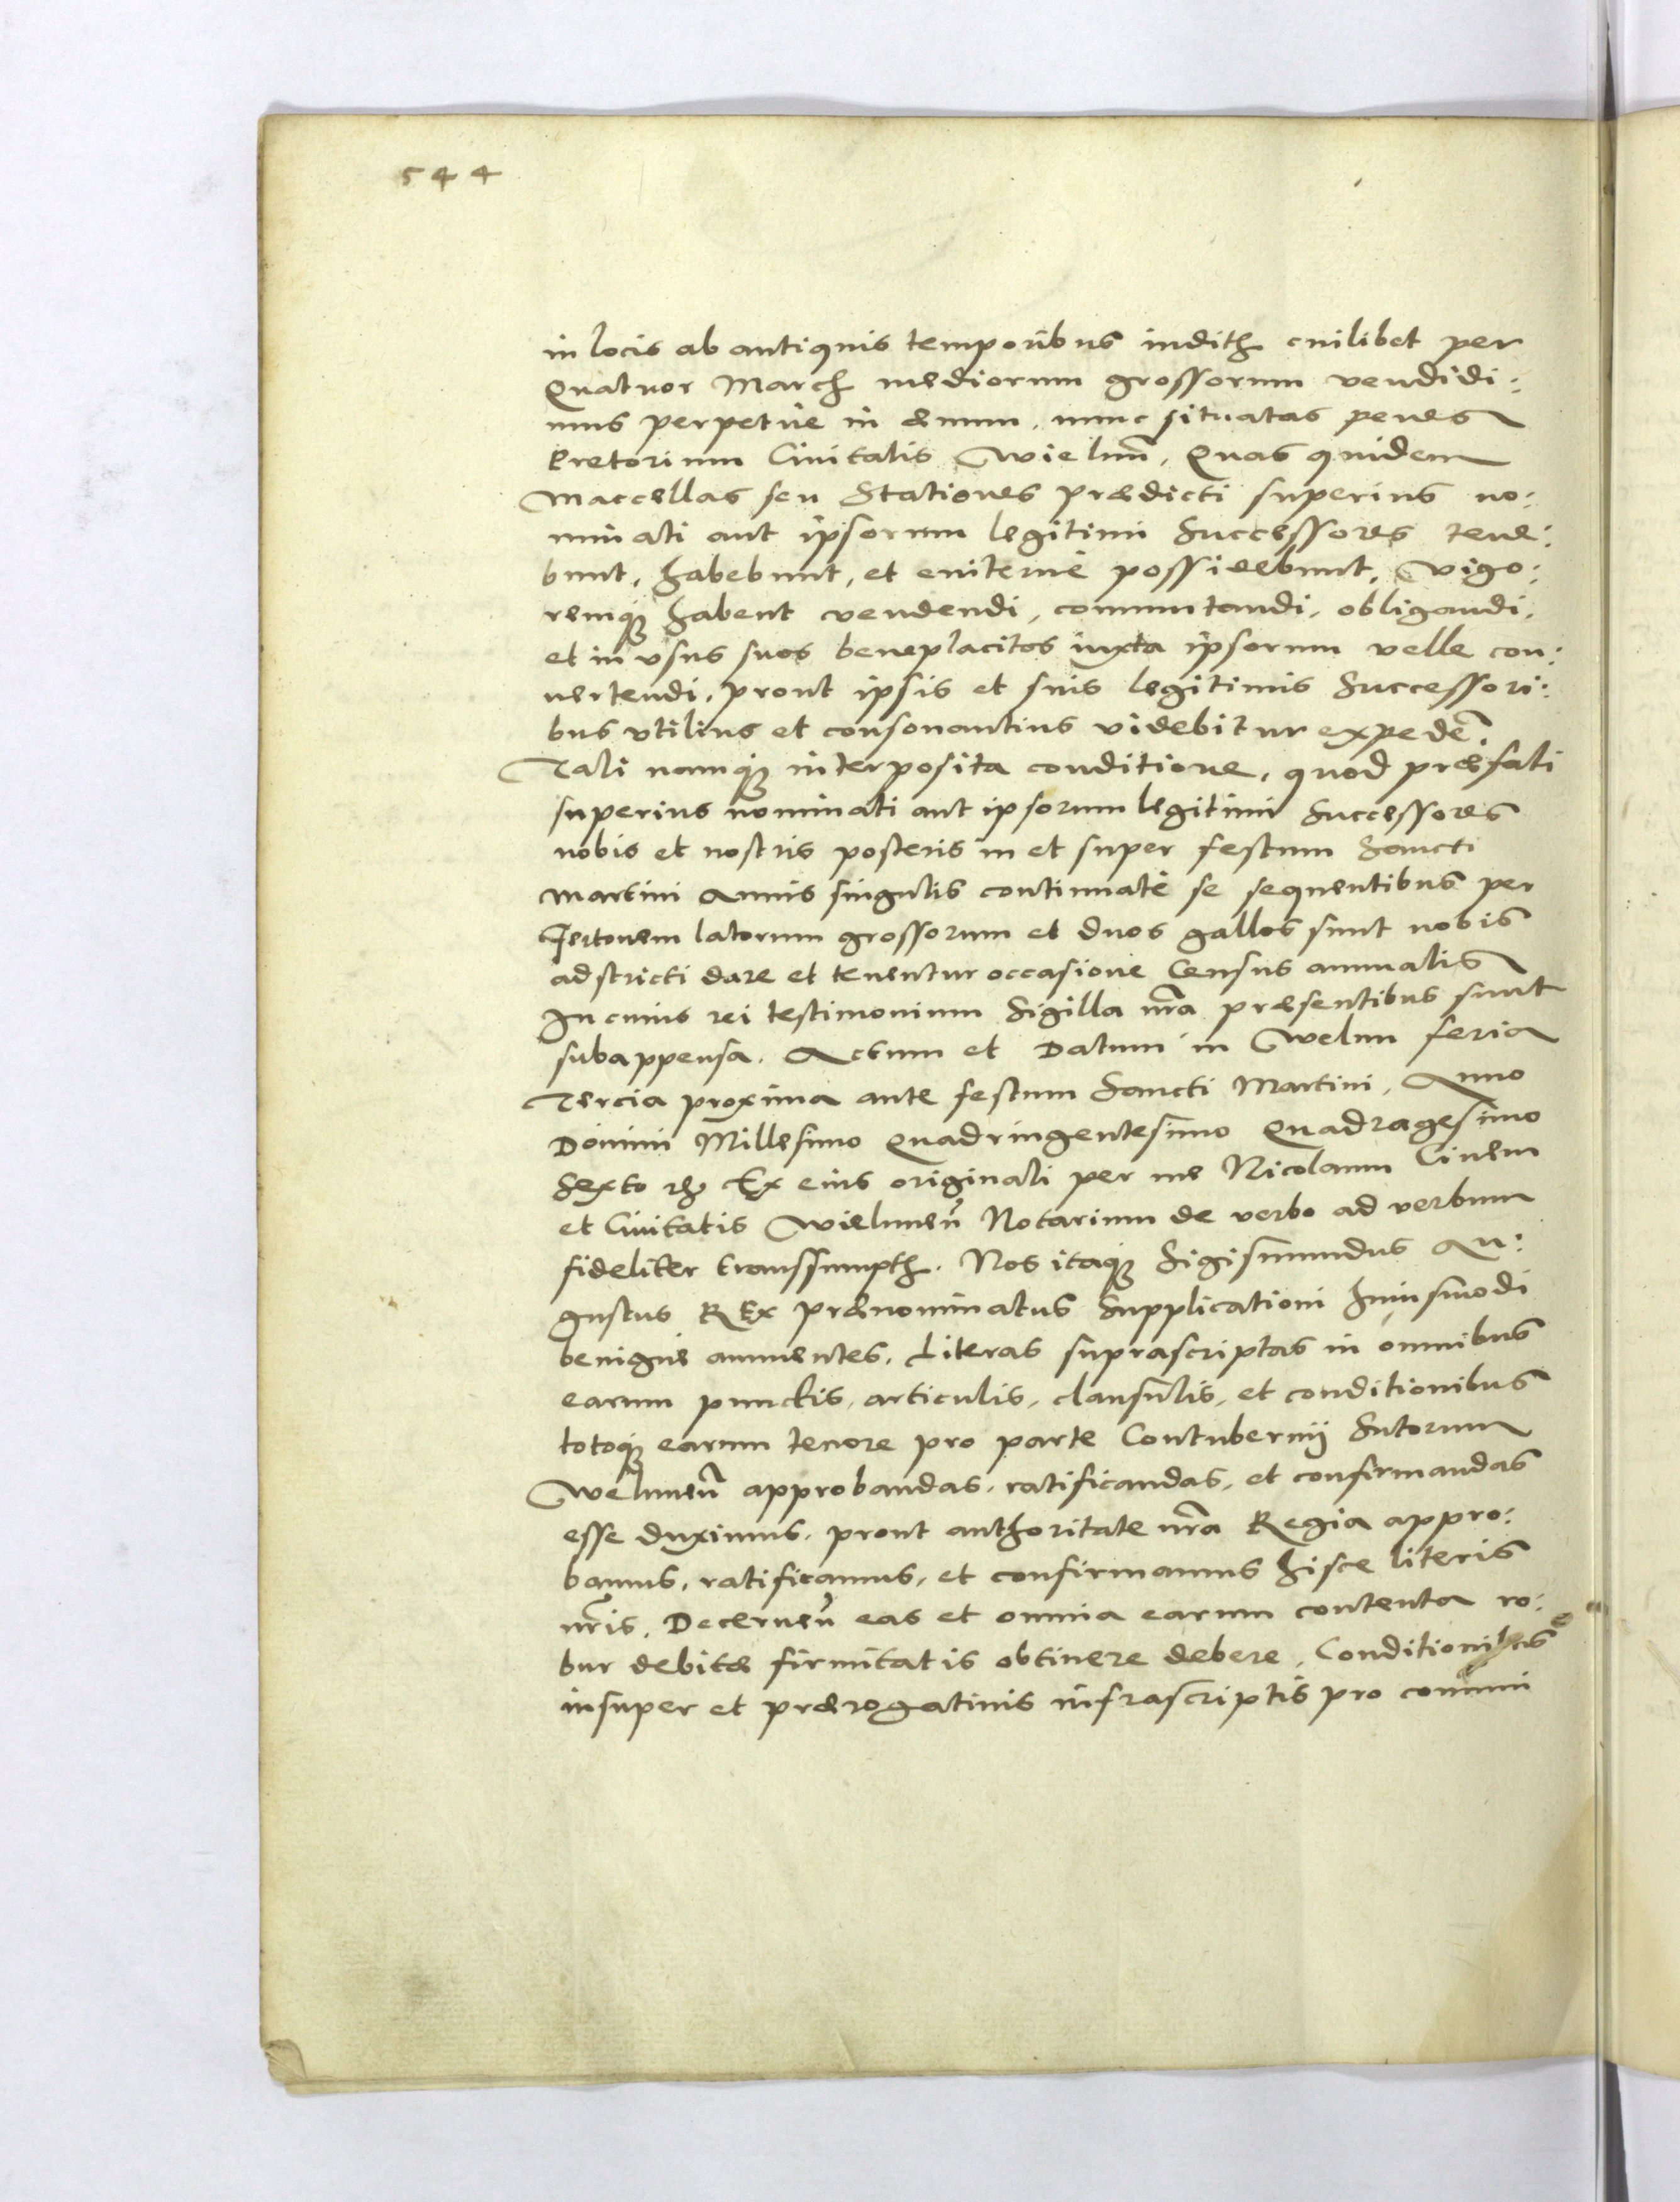 544
in locis ab antiquis temporibus indith cuilibet per
Quatuor March mediorum grossorum vendidi:
mus perpetue in æuum, nunc situatas penes
Pretorium Ciuitatis Wielun̄, Quas quidem
Maccellas seu Stationes prædicti superius no:
minati aut ipsorum legitimi Successores tene:
bunt, habebunt, et euiterne possidebunt, Vigo:
remq3 habent vendendi, commutandi, obligandi,
et in vsus suos beneplacitos iuxta ipsorum velle con:
uertendi, prout ipsis et suis legitimis Successori:
bus vtilius et consonantius videbitur exped̄e.
Tali namq3 interposita conditione, quod præfati
superius nominati aut ipsorum legitimi Successores
nobis et nostris posteris in et super festum Sancti
Martini Annis singulis continuatè se sequentibus per
fertonem latorum grossorum et duos gallos sunt nobis
adstricti dare et tenentur occasione Census annualis
In cuius rei testimonium Sigilla nr̄a præsentibus sunt
subappensa. Actum et Datum in Welun feria
Tercia proxima ante festum Sancti Martini, Anno
Domini Millesimo Quadringentesimo Quadragesimo
Sexto &c Ex eius originali per me Nicolaum Ciuem
et Ciuitatis Wielunen̄ Notarium de verbo ad verbum
fideliter transsumpth. Nos itaq3 Sigismundus Au:
gustus REx prænominatus Supplicationi huiusmodi
benignè annuentes, Literas suprascriptas in omnibus
earum punctis, articulis, clausulis, et conditionibus
totoq3 earum tenore pro parte Contubernij Sutorum
Welunen̄ approbandas, ratificandas, et confirmandas
esse duximus, prout authoritate nr̄a Regia appro:
bamus, ratificamus, et confirmamus hisce literis
nr̄is. Decernen̄ eas et omnia earum contenta ro:
bur debitæ firmitatis obtinere debere, Conditionibus
insuper et prærogatiuis infrascriptis pro com̄uni